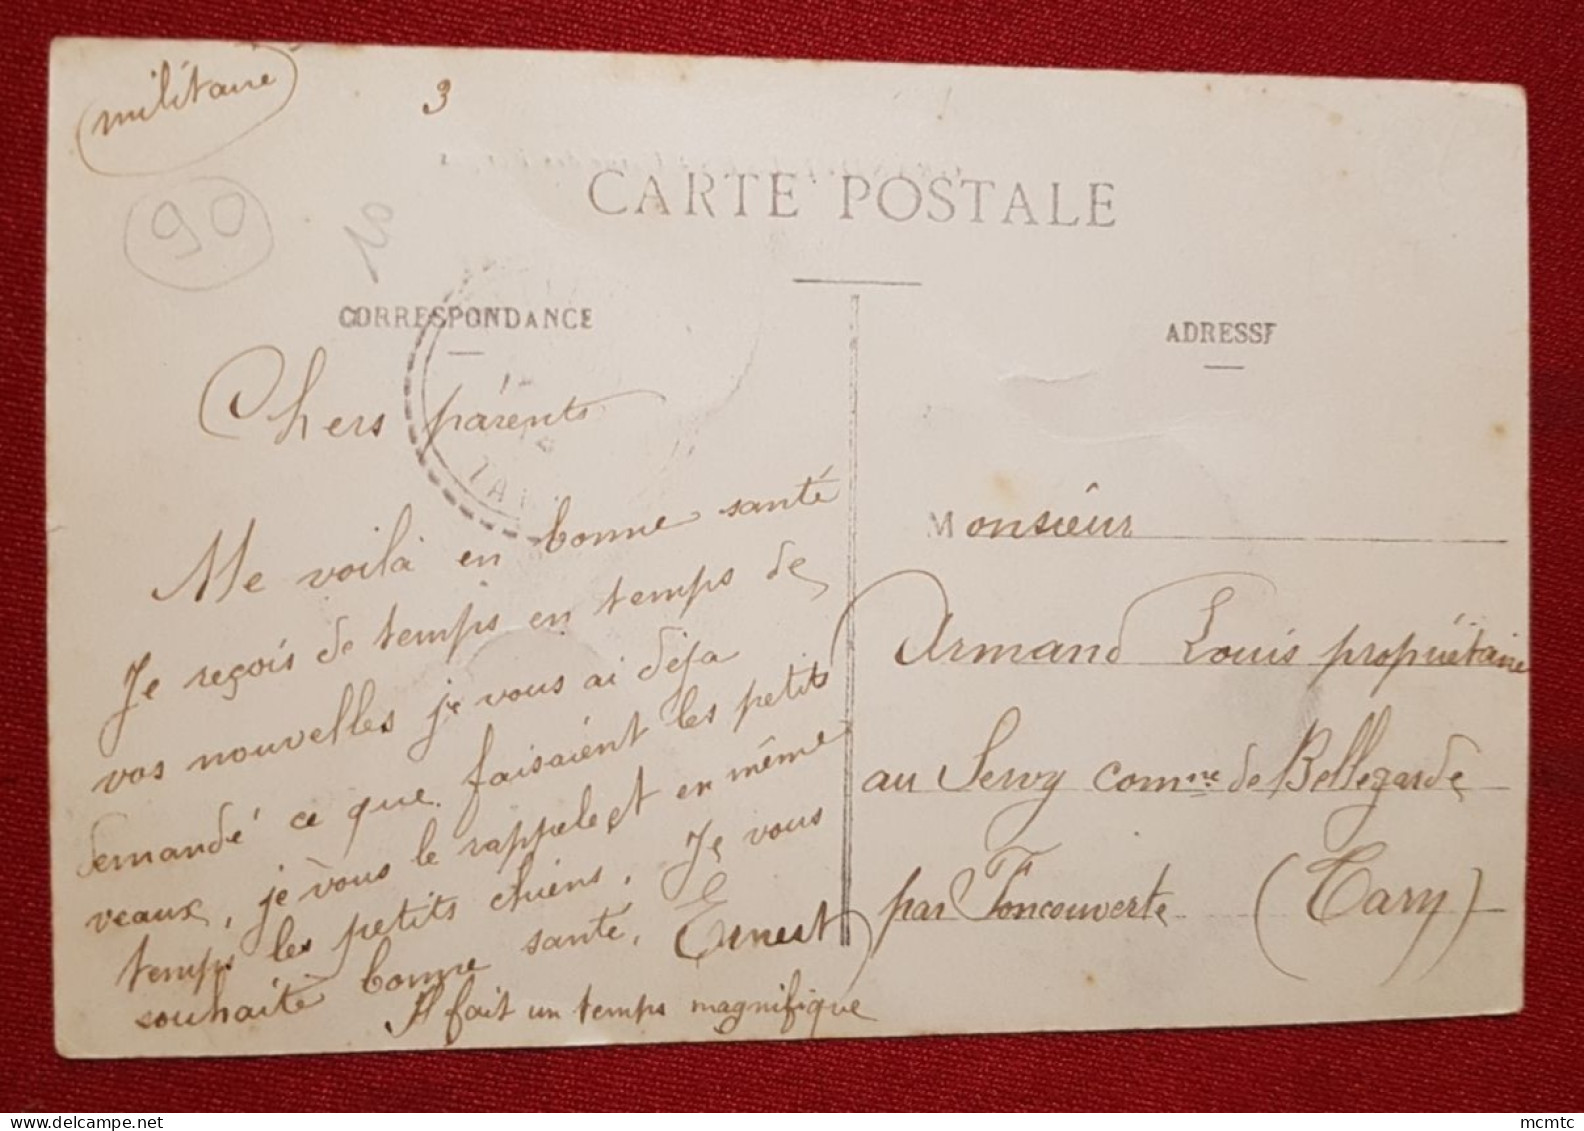 (militaire)
3
90
CARTE POSTALE
CORRESPONDANCE
ADRESSE
Chers parents
Me voilà en bonne santé
Je reçois de temps en temps de
vos nouvelles je vous ai déja
demandé ce que faisaient les petits
veaux, je vous le rappele et en même
temps les petits chiens. Je vous
souhaite bonne santé. Ernest
Il fait un temps magnifique
Monsieur
Armand Louis propriétaire
au comne de Bellegarde
par Foncouverte (Tarn)
delcampe.net
mcmtc